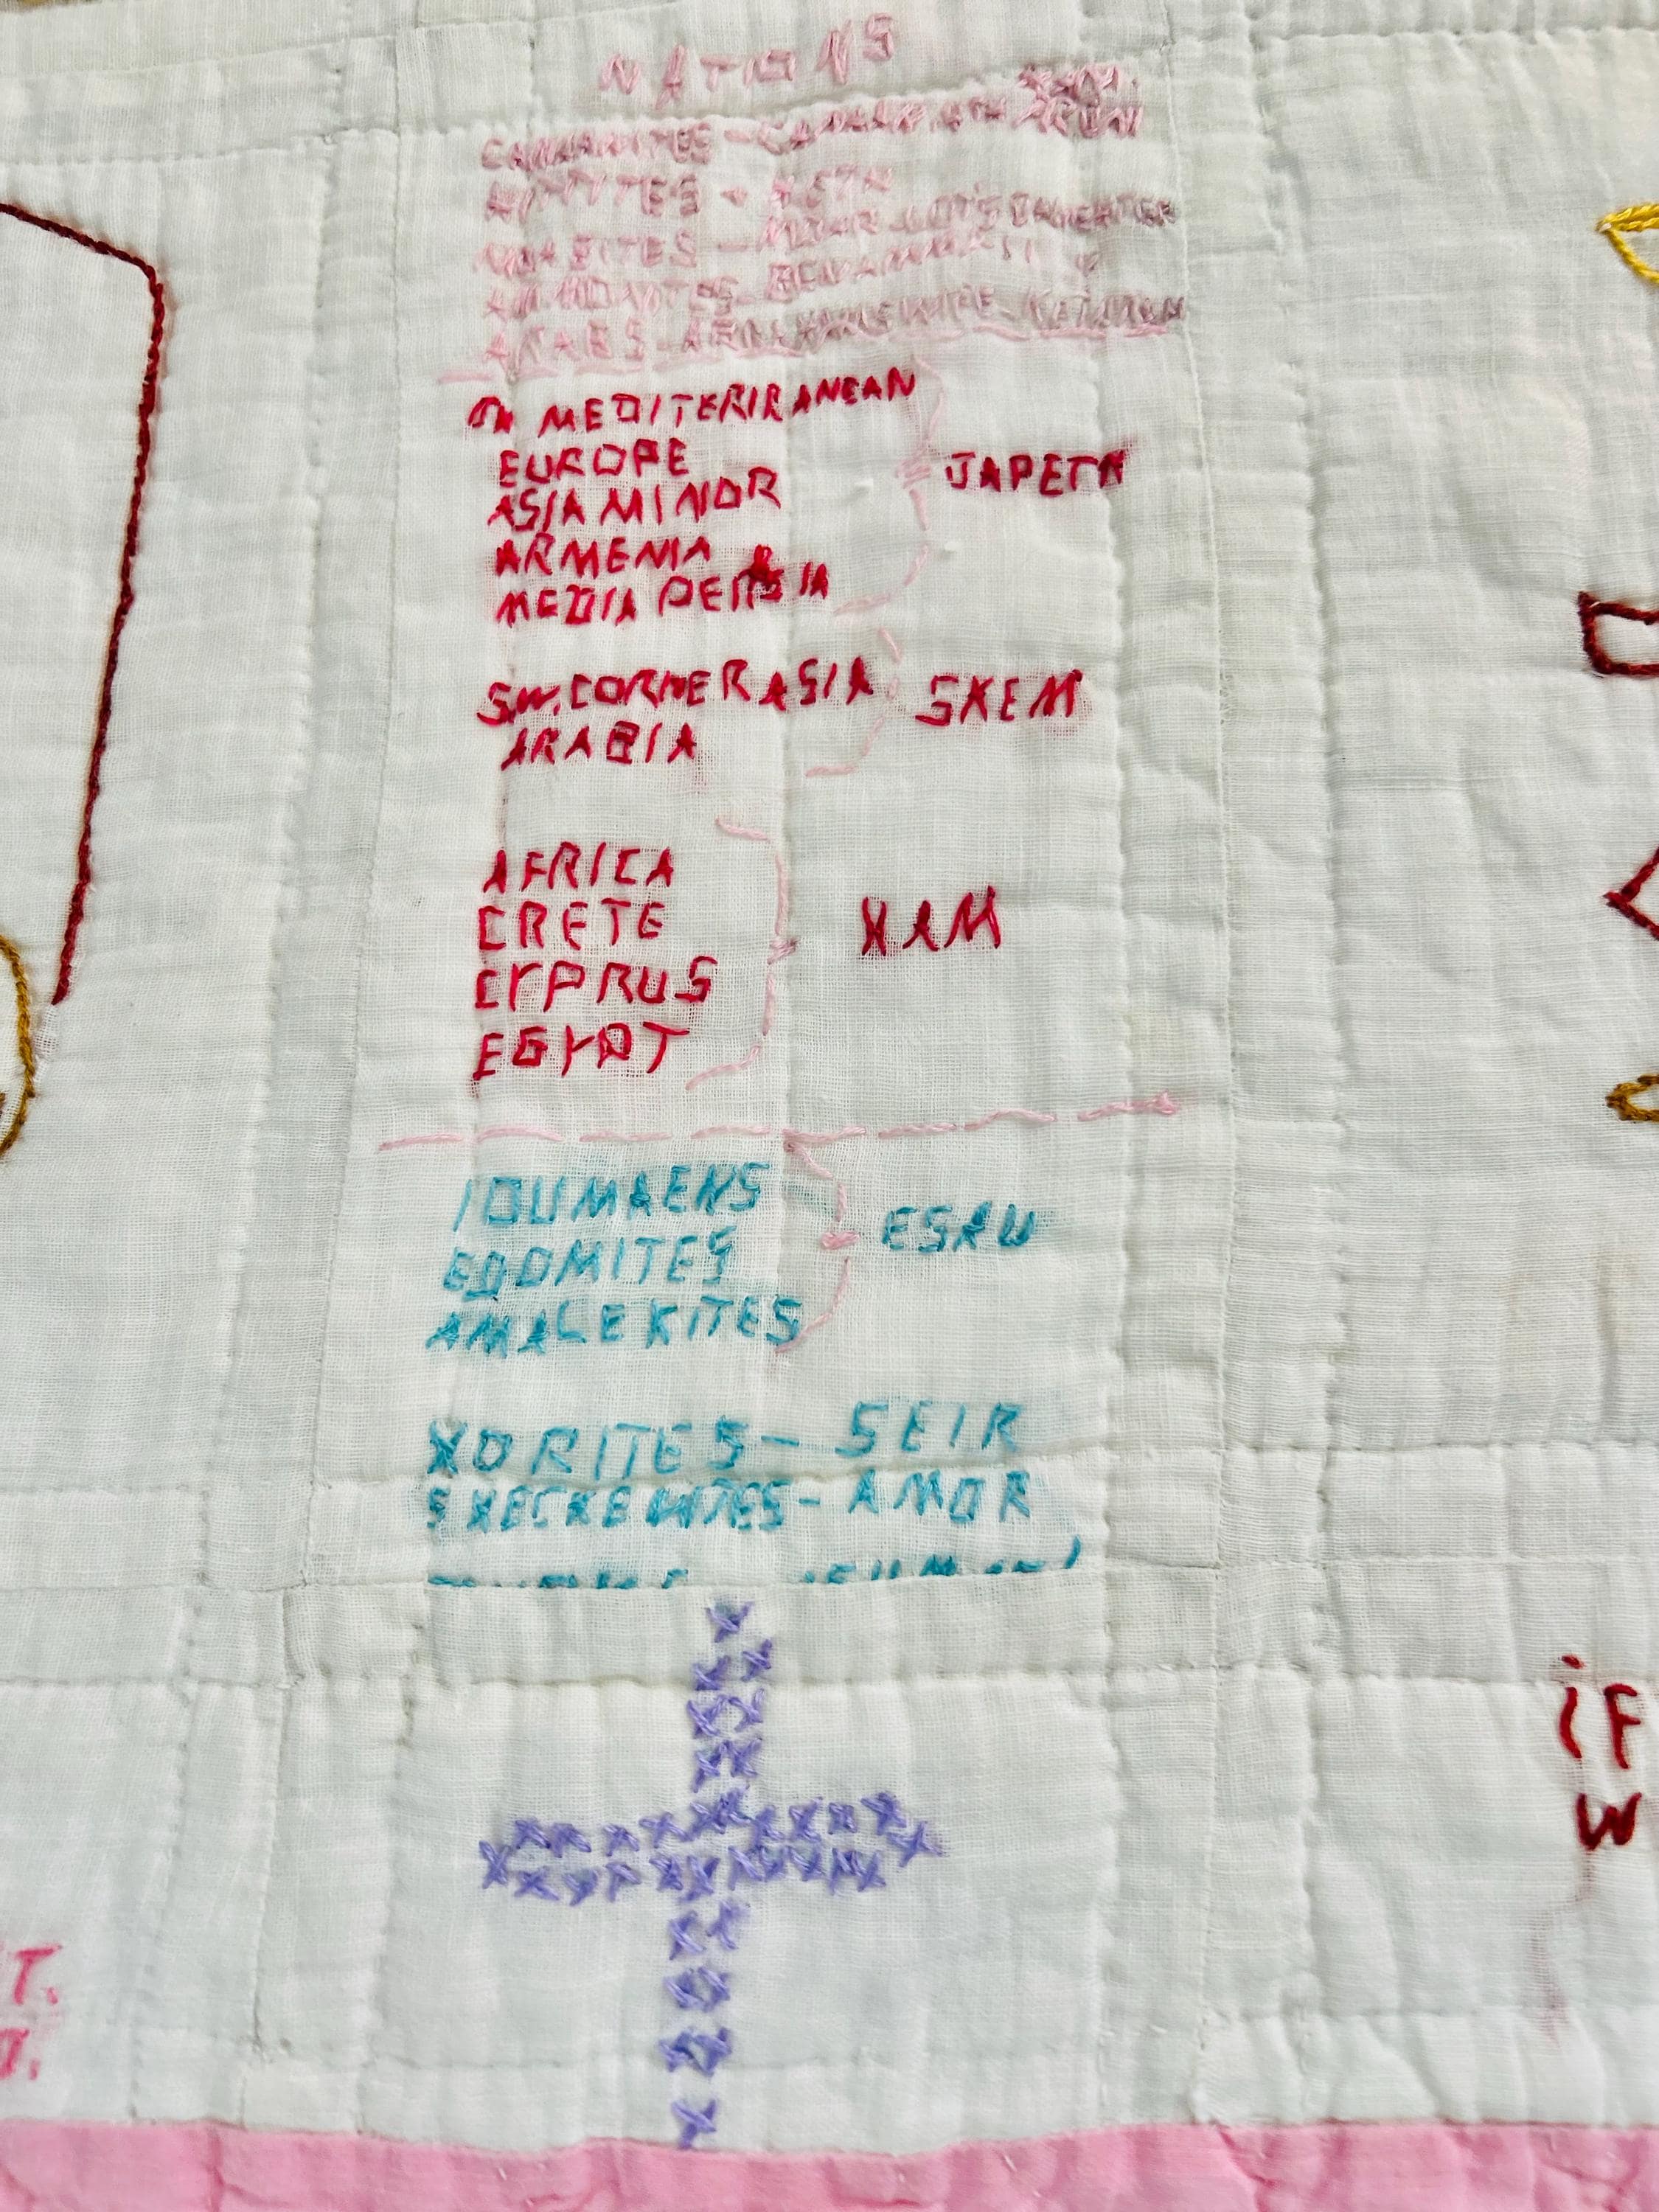 NATIONS
CANAANITES - HAM
HITTITES - HETH
MOABITES - MOAB LOT'S DAUGHTER
AMMONITES BENAMMI
ARABS - KETURAH
MEDITERIRANEAN
EUROPE
ASIA MINOR
ARMENIA
MEDIA PERSIA
JAPETH
S.W. CORNER ASIA
ARABIA
SHEM
AFRICA
CRETE
CYPRUS
EGYPT
HAM
IDUMAENS
EDOMITES
AMALEKITES
ESAU
HORITES - SEIR
SHECHEMITES - AMOR
IF
W
T.